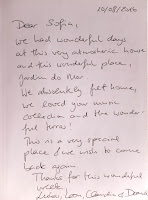 10/08/2016
Dear Sofia,
we had wonderful days
at this very atmospheric house
and this wonderful place,
Jardim do Mar
We absolutely felt home,
we loved your music
collection and the wonder-
ful terras!
This is a very special
place & we wish to come
back again
Thanks for this wonderful
week
Lukas, Leon,